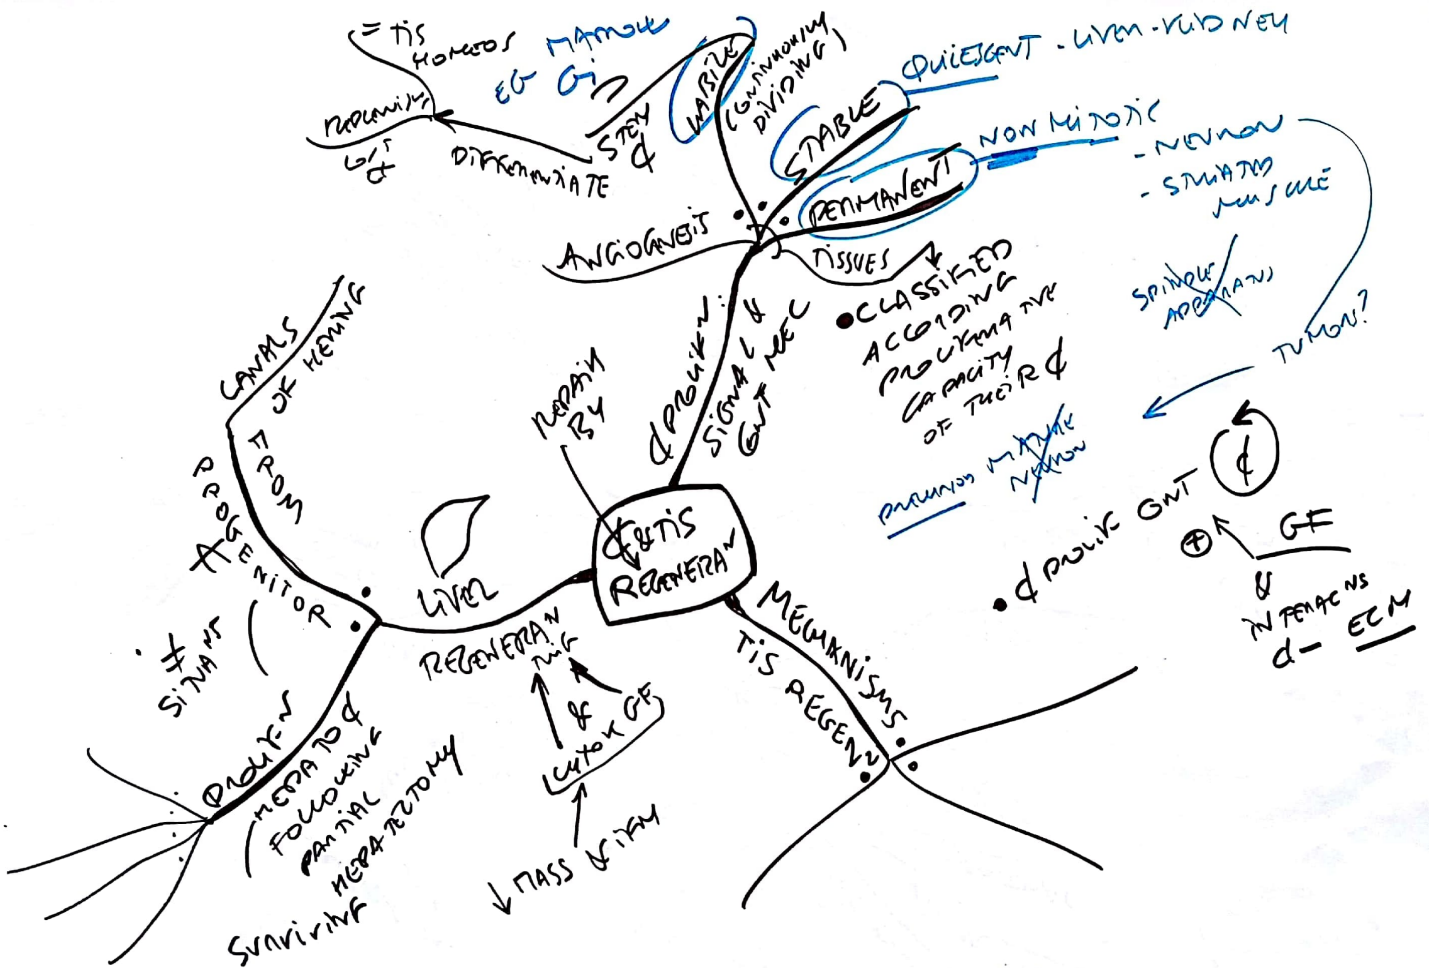 = TIS
HOMEOS
MARROW
EG Gi
STEM
¢
DIFFERENTIATE
LABILE
(CONTINUOUSLY
DIVIDING)
STABLE
QUIESCENT - LIVER - KIDNEY
PERMANENT
NON MITOTIC
- NEURON
- STRIATED
MUSCLE
SPINDLE
APPARATUS
TUMOR?
MATURE
NEURON
ANGIOGENESIS
TISSUES
• CLASSIFIED
ACCORDING
PROLIFERATIVE
CAPACITY
OF THEIR ¢
¢ PROLIFN:
SIGNAL &
CONT MEC
REPAIR
BY
¢ & TIS
REGENERAN
• ¢ PROLIF CONT
¢
+
GF
&
INTERACNS
¢ - ECM
MECHANISMS
TIS REGEN
LIVER
REGENERAN
& GF
CYTOK
↓ MASS & iFM
CANALS
OF HERING
FROM
PROGENITOR
≠
SiTUANS
PROLIFN
HEPATO ¢
FOLLOWING
PARTIAL
HEPATECTOMY
SURVIVING